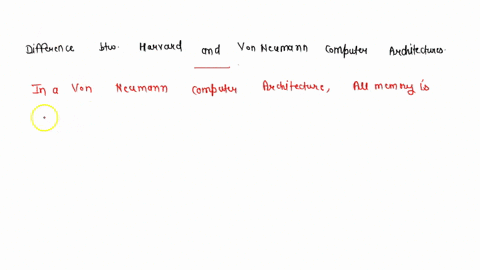 Difference btw. Harvard and Von Neumann Computer Architectures.
In a Von Neumann Computer Architecture, All memory is